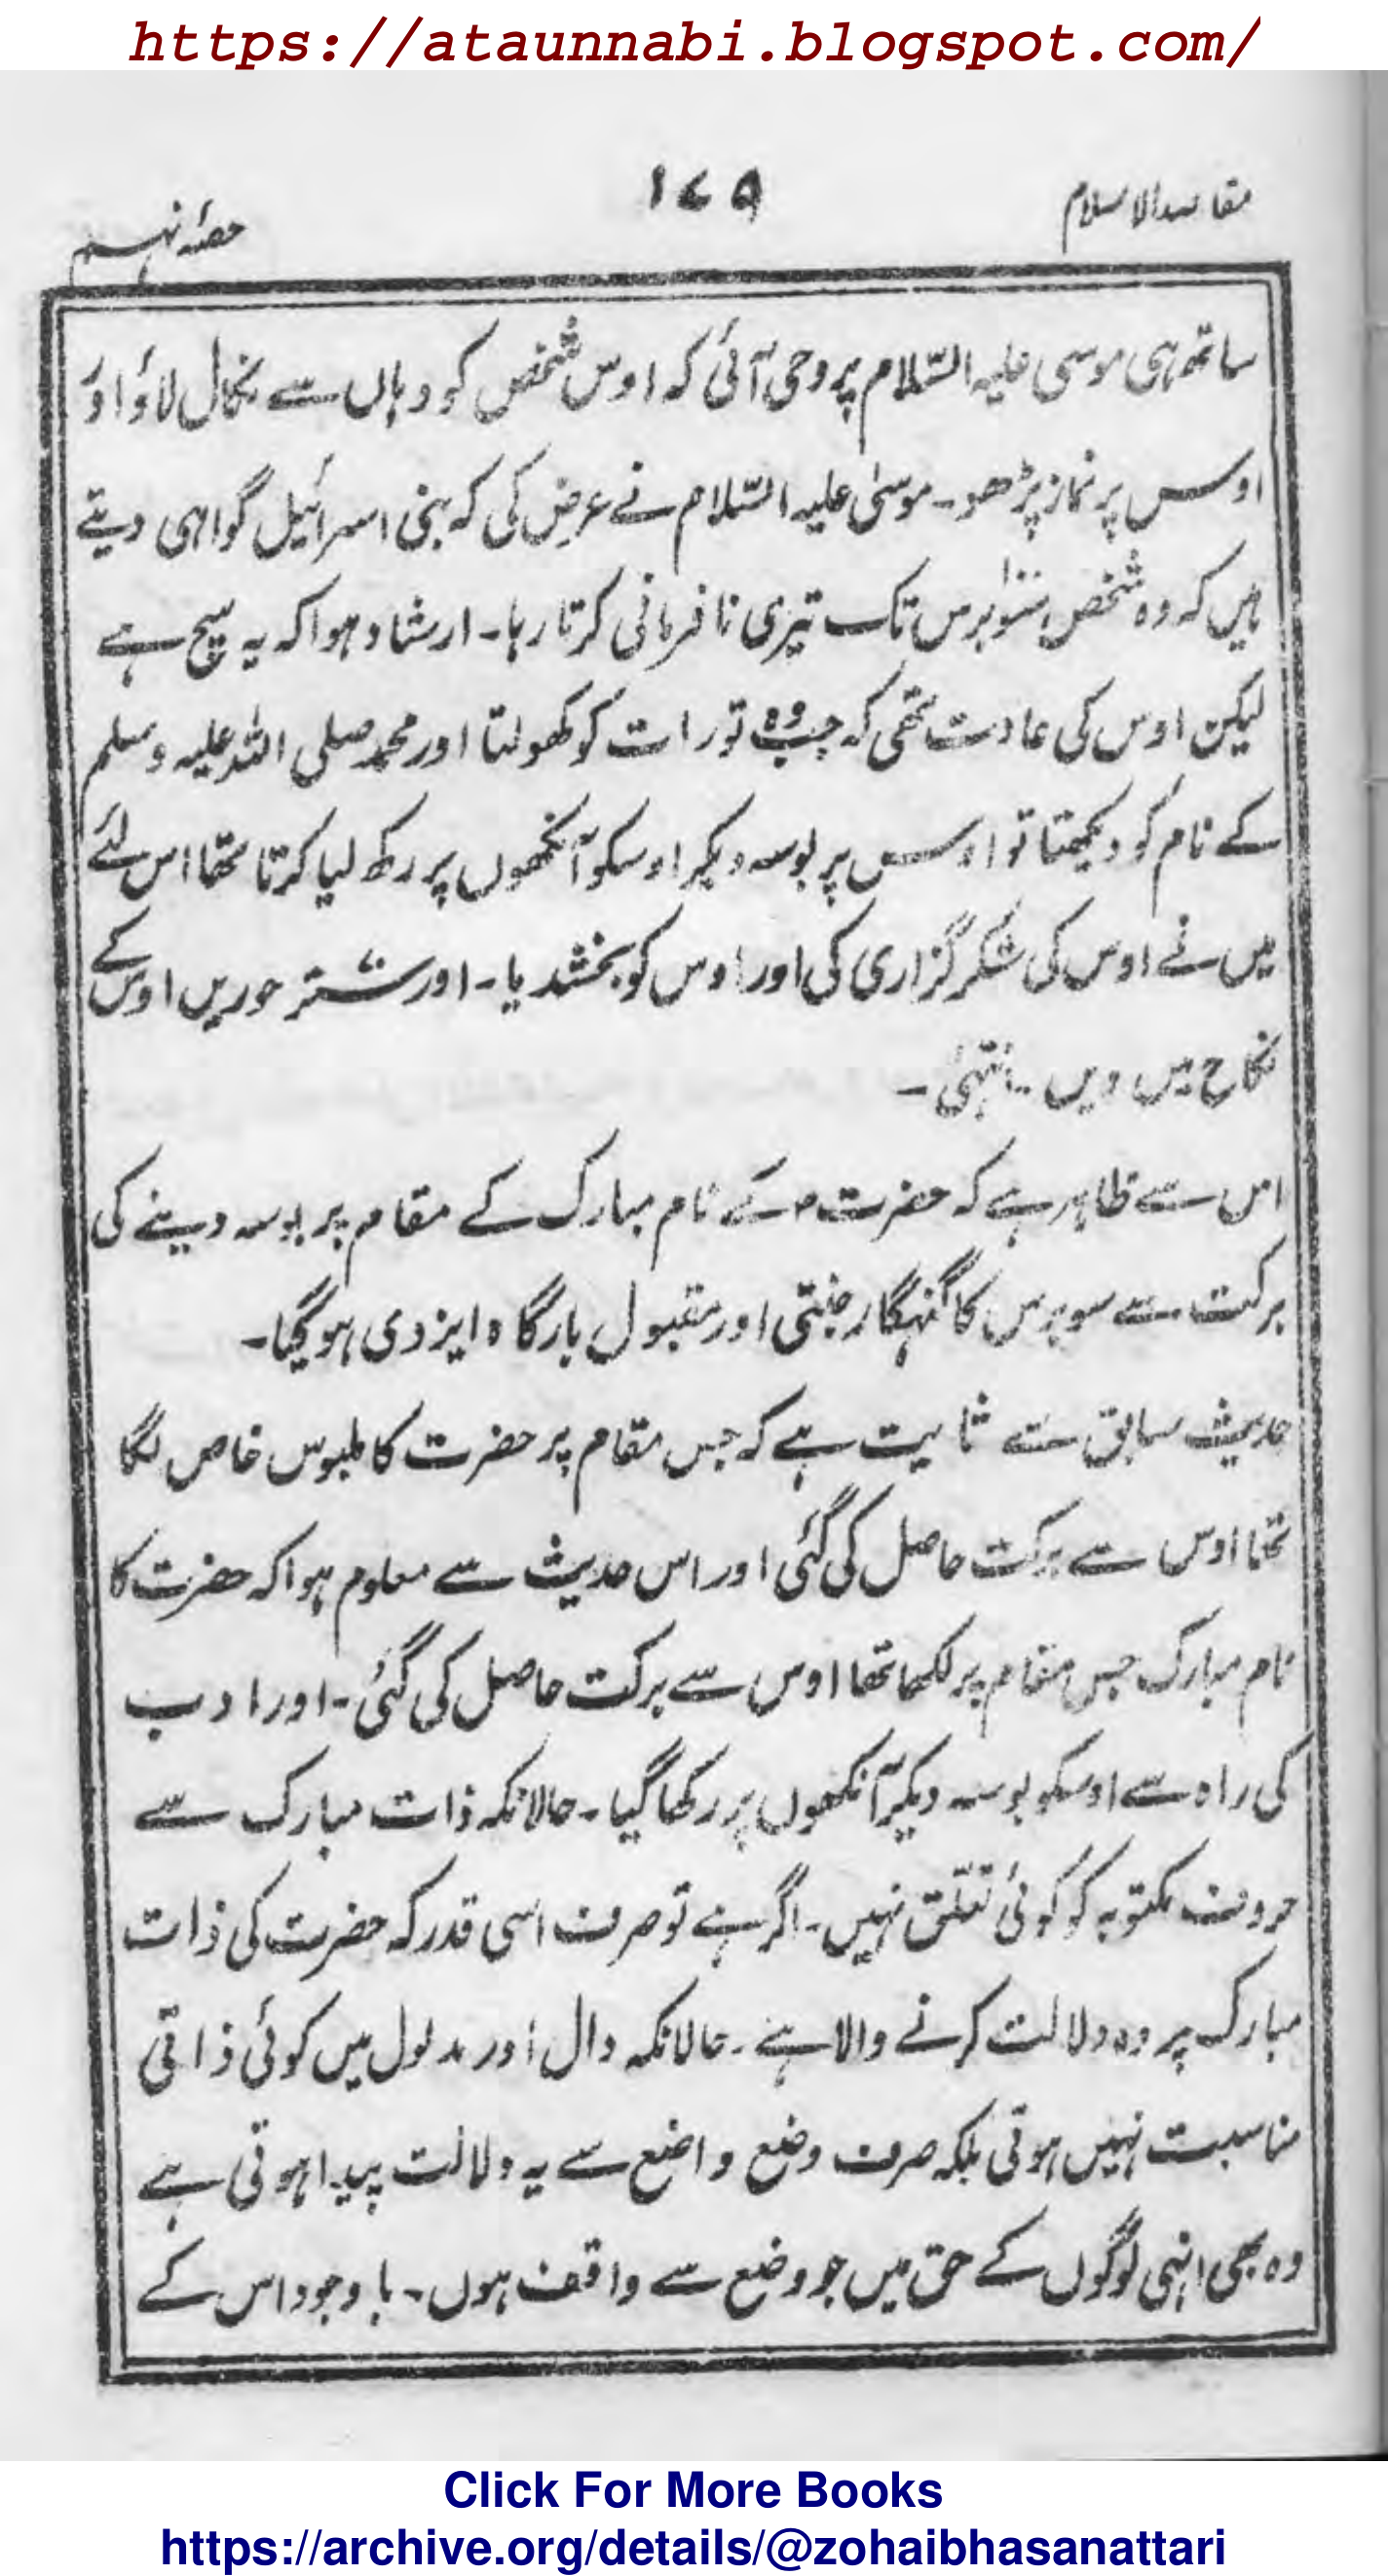 https://ataunnabi.blogspot.com/
مقاصدالاسلام ۱۷۹ حصۂ نہم
ساتھ ہی موسی علیہ السّلام پر وحی آئی کہ اوس شخص کو وہاں سے نکال لاؤ اوَر
اوس پر نماز پڑھو۔ موسیٰ علیہ السّلام نے عرض کی کہ بنی اسرائیل گواہی دیتے
ہیں کہ وہ شخص سَو برس تک تیری نافرمانی کرتا رہا۔ ارشاد ہوا کہ یہ سچ ہے
لیکن اوس کی عادت تھی کہ جب وہ تورات کو کھولتا اور محمد صلی اللہ علیہ وسلم
کے نام کو دیکھتا تو اوس پر بوسہ دیکر اوسکو آنکھوں پر رکھ لیا کرتا تھا اس لئے
میں نے اوس کی شکر گزاری کی اور اوس کو بخشدیا۔ اور ستّر حوریں اوس کے
نکاح میں دیں۔ انتہیٰ۔
اس سے ظاہر ہے کہ حضرت ؐ کے نام مبارک کے مقام پر بوسہ دینے کی
برکت سے سو برس کا گنہگار جنتی اور مقبول بارگاہ ایزدی ہوگیا۔
حدیث سابق سے ثابت ہے کہ جس مقام پر حضرت کا ملبوس خاص لگا
تھا اوس سے برکت حاصل کی گئی اور اس حدیث سے معلوم ہوا کہ حضرت کا
نام مبارک جس مقام پر لکھا تھا اوس سے برکت حاصل کی گئی۔ اور ادب
کی راہ سے اوسکو بوسہ دیکر آنکھوں پر رکھا گیا۔ حالانکہ ذات مبارک سے
حروف مکتوبہ کو کوئی تعلّق نہیں۔ اگر ہے تو صرف اسی قدر کہ حضرت کی ذات
مبارک پر وہ دلالت کرنے والا ہے۔ حالانکہ دال اور مدلول میں کوئی ذاتی
مناسبت نہیں ہوتی بلکہ صرف وضع واضع سے یہ دلالت پیدا ہوتی ہے
وہ بھی انہی لوگوں کے حق میں جو وضع سے واقف ہوں۔ باوجود اس کے
Click For More Books
https://archive.org/details/@zohaibhasanattari